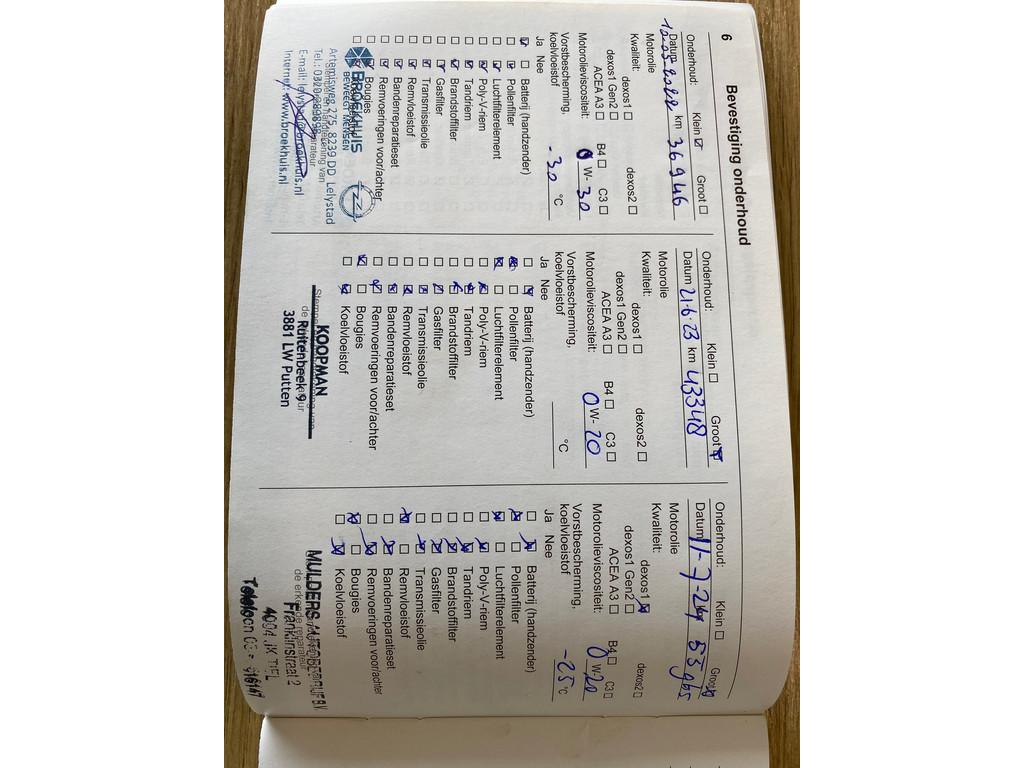 6
Bevestiging onderhoud
Onderhoud: Klein ☑ Groot ☐
Datum 12-05-2022 km 36946
Motorolie
Kwaliteit: dexos1 ☐ dexos2 ☐
dexos1 Gen2 ☐
ACEA A3 ☐ B4 ☐ C3 ☐
Motorolieviscositeit: 0 W- 30
Vorstbescherming,
koelvloeistof -30 °C
Ja Nee
☑ ☐ Batterij (handzender)
☐ ☑ Pollenfilter
☐ ☑ Luchtfilterelement
☐ ☑ Poly-V-riem
☐ ☑ Tandriem
☐ ☑ Brandstoffilter
☐ ☑ Gasfilter
☐ ☑ Transmissieolie
☐ ☑ Remvloeistof
☐ ☑ Bandenreparatieset
☐ ☑ Remvoeringen voor/achter
☐ ☑ Bougies
BROEKHUIS
BEWEEGT MENSEN
Artemisweg 275, 8239 DD Lelystad
Internet: www.broekhuis.nl
Onderhoud: Klein ☐ Groot ☑
Datum 21-6-23 km 43348
Motorolie
Kwaliteit: dexos1 ☐ dexos2 ☐
dexos1 Gen2 ☐
ACEA A3 ☐ B4 ☐ C3 ☐
Motorolieviscositeit: 0 W- 20
Vorstbescherming,
koelvloeistof °C
Ja Nee
☐ ☑ Batterij (handzender)
☑ ☐ Pollenfilter
☑ ☐ Luchtfilterelement
☐ ☑ Poly-V-riem
☐ ☑ Tandriem
☐ ☑ Brandstoffilter
☐ ☑ Gasfilter
☐ ☑ Transmissieolie
☐ ☑ Remvloeistof
☐ ☑ Bandenreparatieset
☐ ☑ Remvoeringen voor/achter
☑ ☐ Bougies
☐ ☑ Koelvloeistof
KOOPMAN
Ruitenbeek 9
3881 LW Putten
Onderhoud: Klein ☐ Groot ☑
Datum 11-7-24 km 53965
Motorolie
Kwaliteit: dexos1 ☑ dexos2 ☐
dexos1 Gen2 ☐
ACEA A3 ☐ B4 ☐ C3 ☐
Motorolieviscositeit: 0 W- 20
Vorstbescherming,
koelvloeistof -25 °C
Ja Nee
☐ ☑ Batterij (handzender)
☑ ☐ Pollenfilter
☑ ☐ Luchtfilterelement
☐ ☑ Poly-V-riem
☐ ☑ Tandriem
☐ ☑ Brandstoffilter
☐ ☑ Gasfilter
☐ ☑ Transmissieolie
☑ ☐ Remvloeistof
☐ ☑ Bandenreparatieset
☐ ☑ Remvoeringen voor/achter
☑ ☐ Bougies
☐ ☑ Koelvloeistof
MULDERS AUTOBEDRIJF B.V.
de erkende reparateur
Franklinstraat 2
4004 JK TIEL
Telefoon